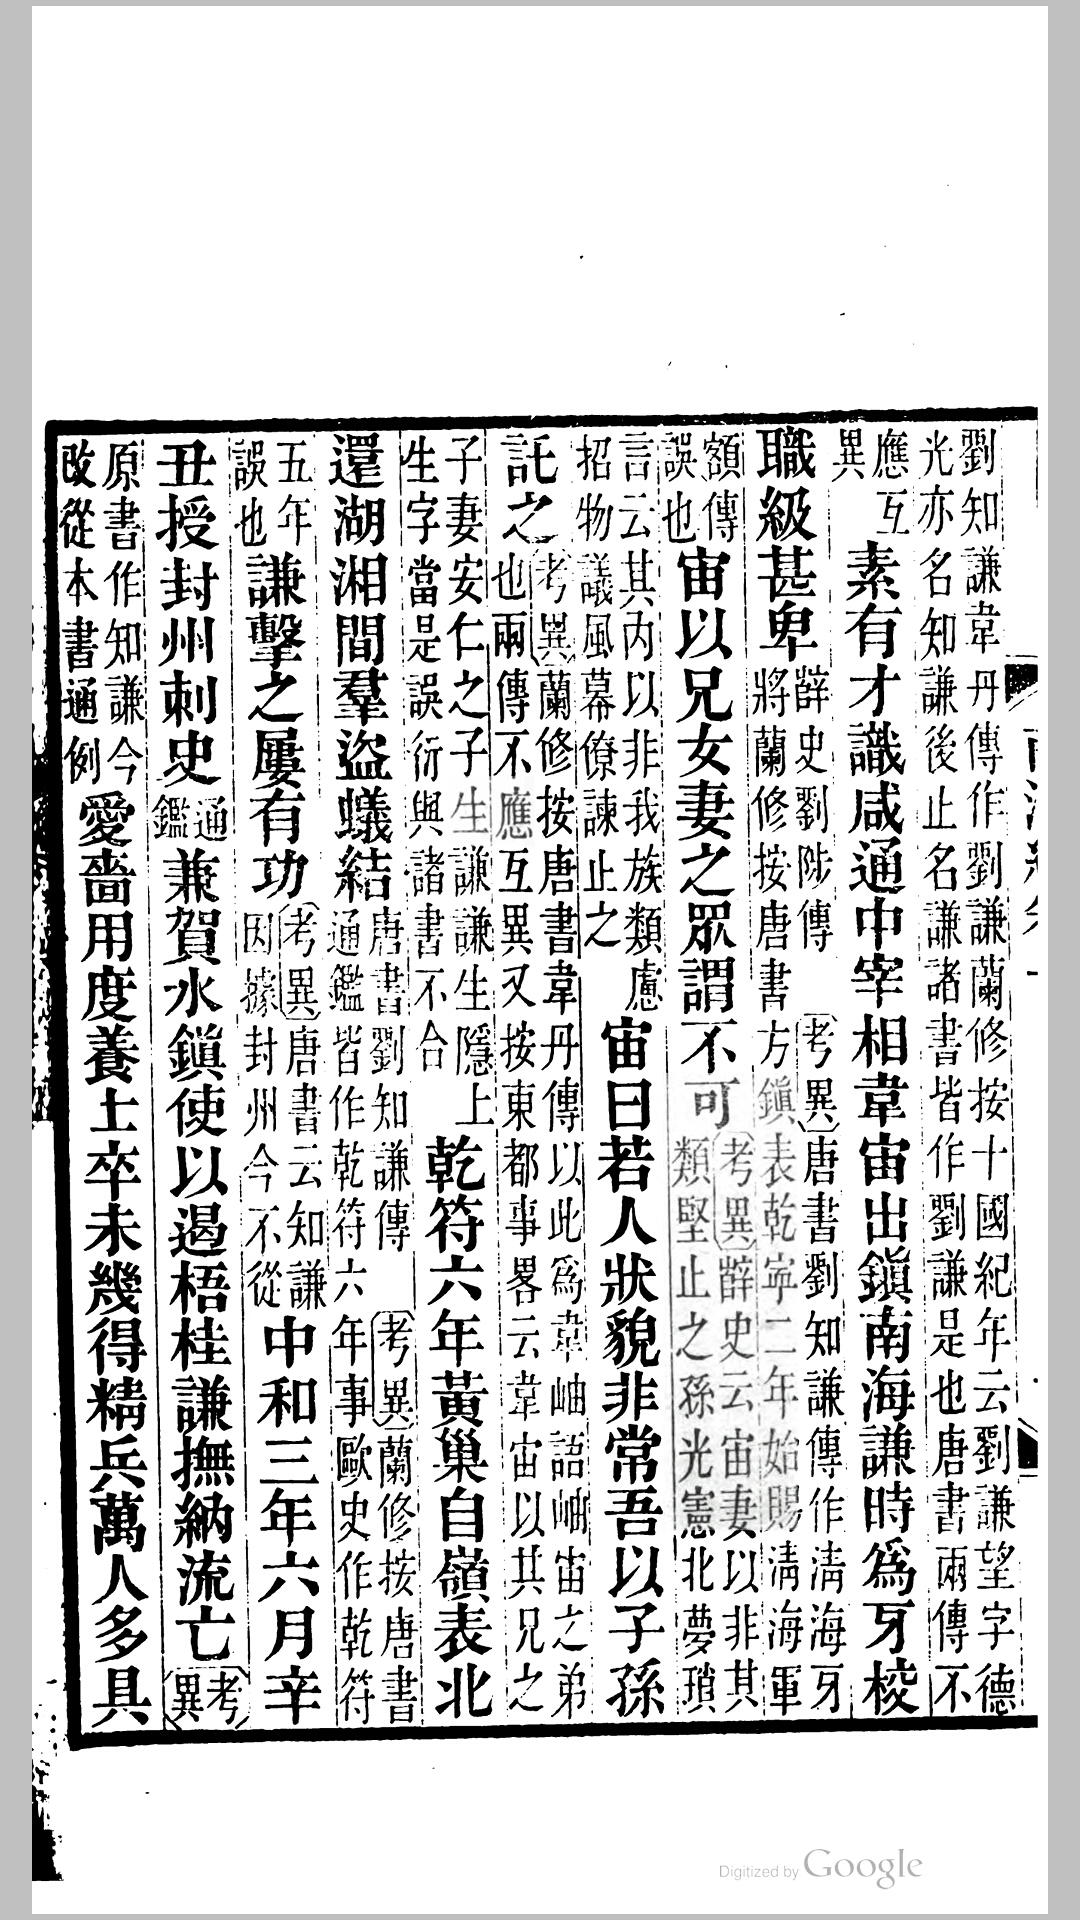 劉知謙韋丹傳作劉謙蘭修按十國紀年云劉謙望字德光亦名知謙後止名謙諸書皆作劉謙是也唐書兩傳不
應互異素有才識咸通中宰相韋宙出鎮南海謙時爲牙校
職級甚卑薛史劉陟傳考異唐書劉知謙傳作淸海牙將蘭修按唐書方鎮表乾寧二年始賜淸海軍
額傳誤也宙以兄女妻之眾謂不可考異薛史云宙妻以非其類堅止之孫光憲北夢瑣
言云其內以非我族類慮招物議風幕僚諫止之宙曰若人狀貌非常吾以子孫
託之考異蘭修按唐書韋丹傳以此爲韋岫語岫宙之弟也兩傳不應互異又按東都事畧云韋宙以其兄之
子妻安仁之子生謙謙生隱上生字當是誤衍與諸書不合乾符六年黃巢自嶺表北
還湖湘間羣盜蟻結唐書劉知謙傳通鑑皆作乾符六考異蘭修按唐書年事歐史作乾符
五年誤也謙擊之屢有功考異唐書云知謙因據封州今不從中和三年六月辛
丑授封州刺史通鑑兼賀水鎮使以遏梧桂謙撫納流亡考異
原書作知謙今改從本書通例愛嗇用度養士卒未幾得精兵萬人多具
Digitized by Google